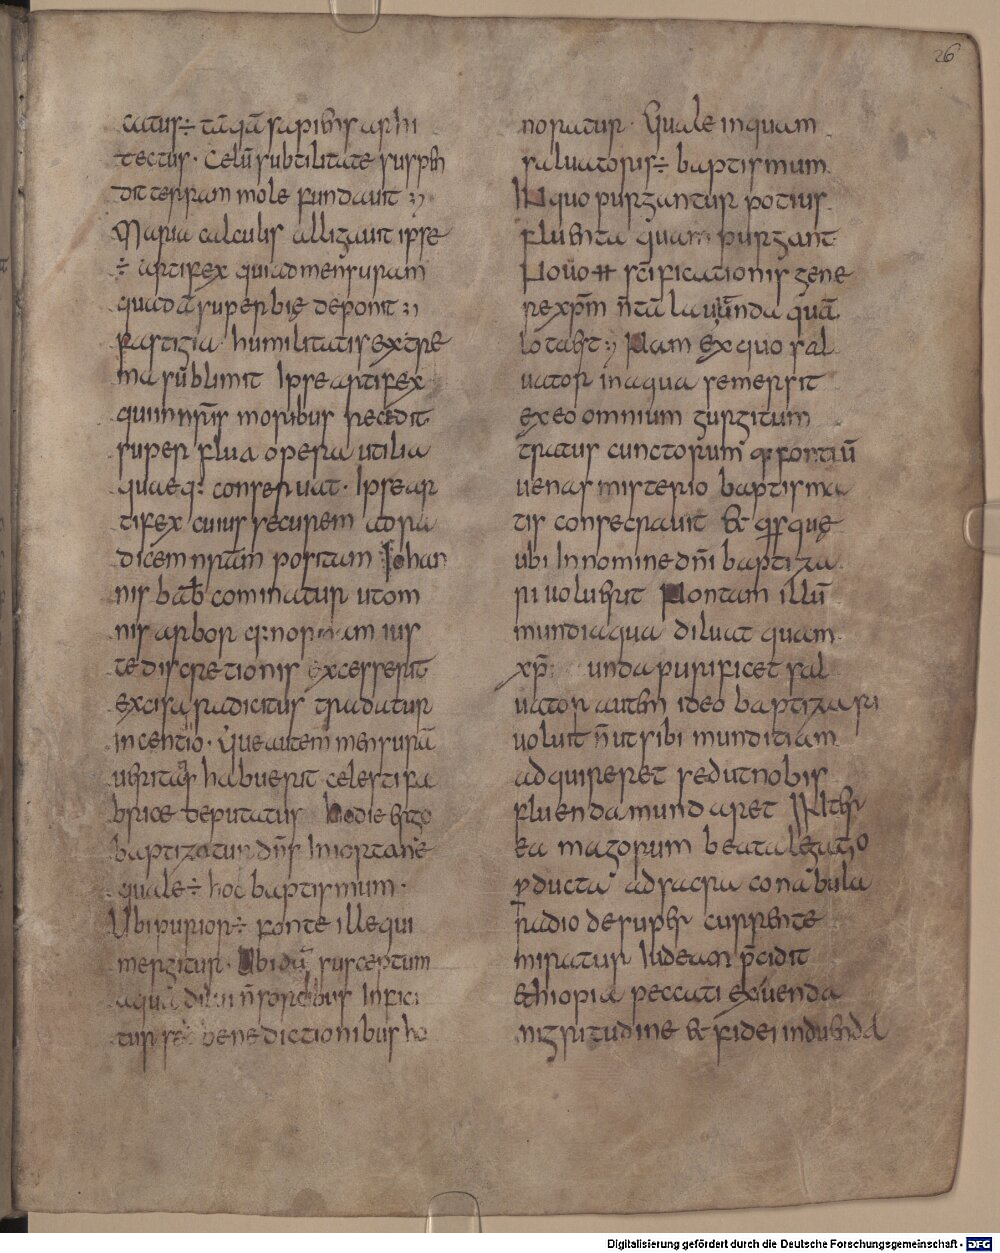 26
catus ÷ tāquā sapiens archi
tectus · Celū subtilitate suspen
dit terram mole fundavit ;
Maria calculis alligavit ipse
÷ artifex qui ad mensuram
quadā superbię deponit ;
fastigia humilitatis extre
ma sublimit Ipse artifex
qui in nr̄is moribus recedit
super flua opera utilia
quaeq: conservat · Ipse ar
tifex cuius securem ad ra
dicem nr̄am positam Iohan
nis bab̄ cominatur ut om
nis arbor q: normam ius
te discretionis excesserit
excisa radicitus tradatur
incentio · Que autem mensurā
veritatis habuerit celesti fa
brice deputatur hodie ergo
baptizatur dn̄s In iortane
quale ÷ hoc baptismum ·
Ubi purior ÷ fonte ille qui
mergitur · Ubi dū susceptum
aqua dilui n̄ sordibus Infici
tur se benedictionibus ho
noratur · Quale inquam
salvatoris ÷ baptismum
In quo purgantur potius
flumina quam purgant
Novo sc̄ificationis gene
re xp̄m n̄ tā la unda quā
lota est ; Nam ex quo sal
vator in aqua semersit
ex eo omnium gurgitum
tratus cunctorum q: fontiū
venas misterio baptisma
tis consecravit Et quisque
ubi In nomine dn̄i baptiza
ri voluerit Non tam illū
mundi aqua diluat quam
xp̄ unda purificet sal
vator autem ideo baptizari
voluit n̄ ut sibi munditiam
adquireret sed ut nobis
fluenda mundaret Alth
ea magorum beata legatio
ꝑducta ad sacra conabula
radio desuper currente
miratur Iudeam p̄cidit
Ethiopia peccati exuenda
nigritudine et fidei induenda
Digitalisierung gefördert durch die Deutsche Forschungsgemeinschaft - DFG